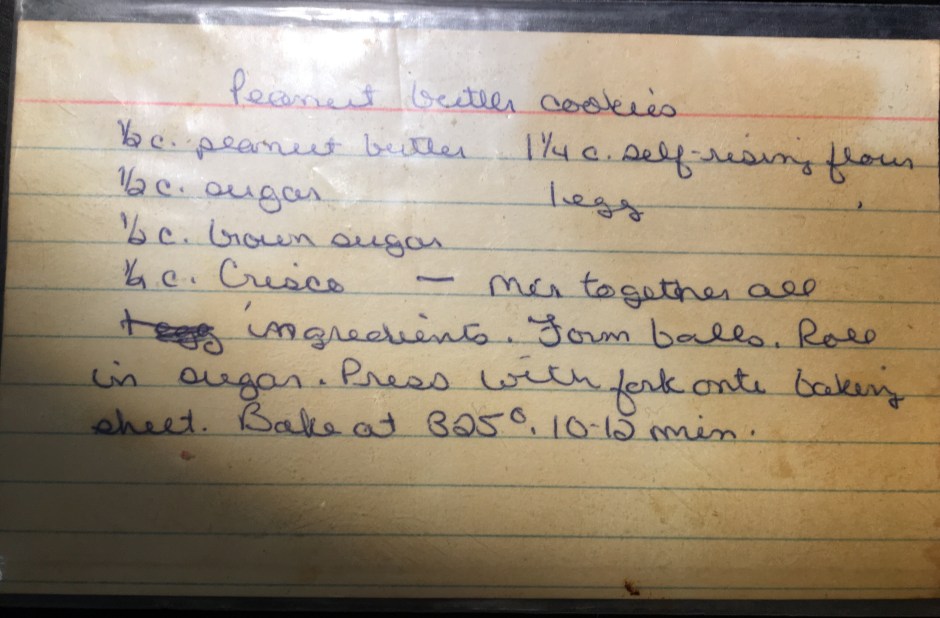 Peanut butter cookies
1/2 c. peanut butter 1 1/4 c. self-rising flour
1/2 c. sugar 1 egg
1/2 c. brown sugar
c. Crisco — mix together all
ingredients. Form balls. Roll
in sugar. Press with fork onto baking
sheet. Bake at 325°. 10-12 min.